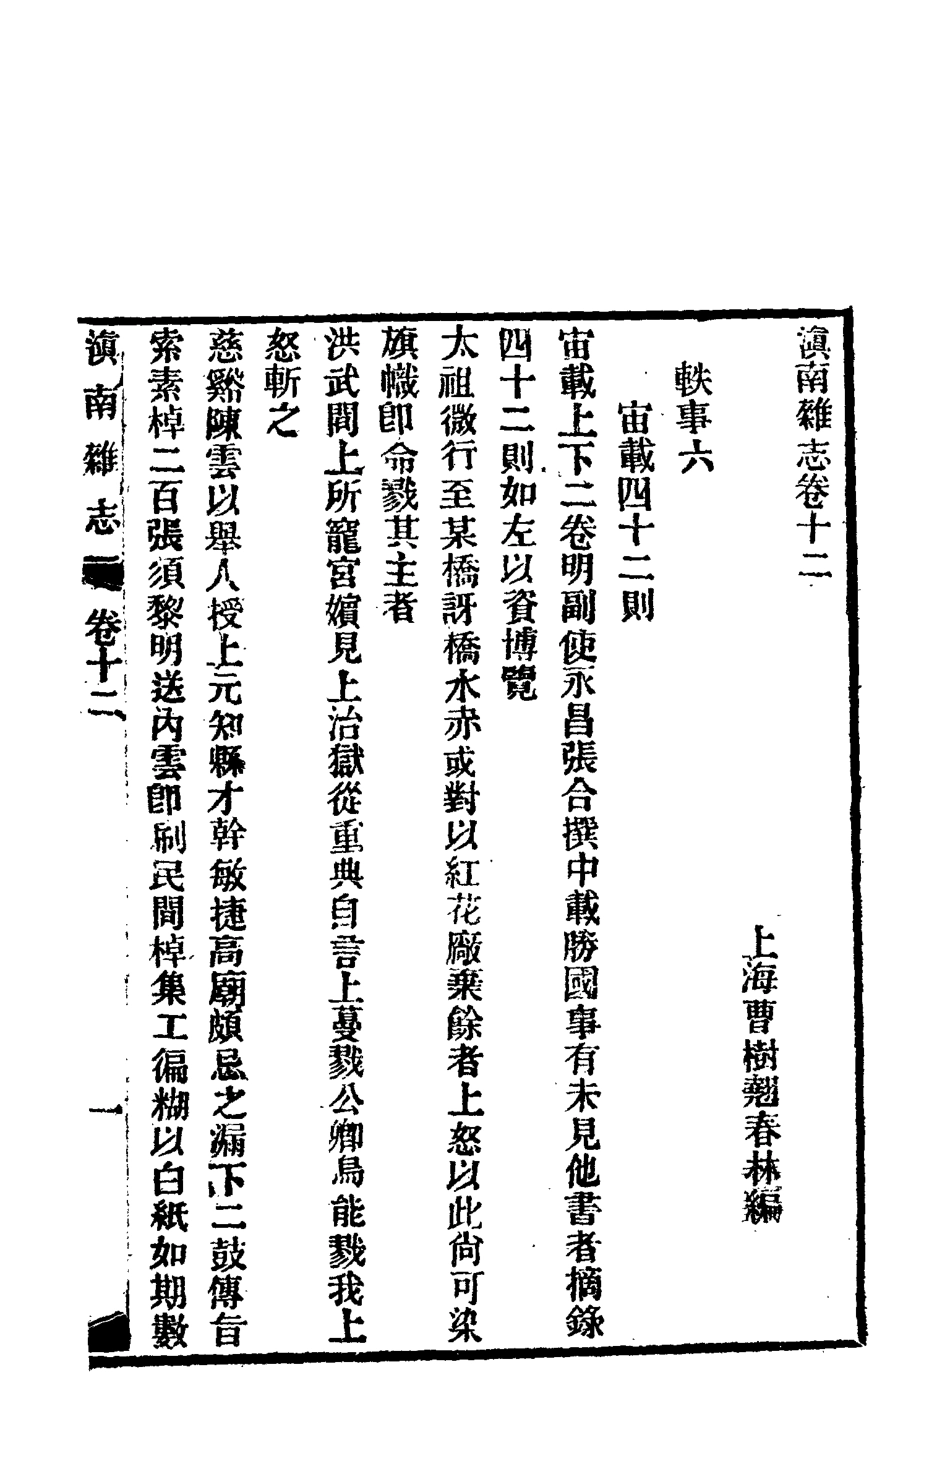 滇南雜志卷十二
上海曹樹翹春林編
軼事六
宙載四十二則
宙載上下二卷明副使永昌張合撰中載勝國事有未見他書者摘錄
四十二則如左以資博覽
太祖微行至某橋訝橋水赤或對以紅花廠棄餘者上怒以此尚可染
旗幟卽命戮其主者
洪武間上所寵宮嬪見上治獄從重典自言上蔓戮公卿烏能戮我上
怒斬之
慈谿陳雲以舉人授上元知縣才幹敏捷高廟頗忌之漏下二鼓傳旨
索素棹二百張須黎明送內雲卽刷民間棹集工徧糊以白紙如期數
滇南雜志 卷十二 一